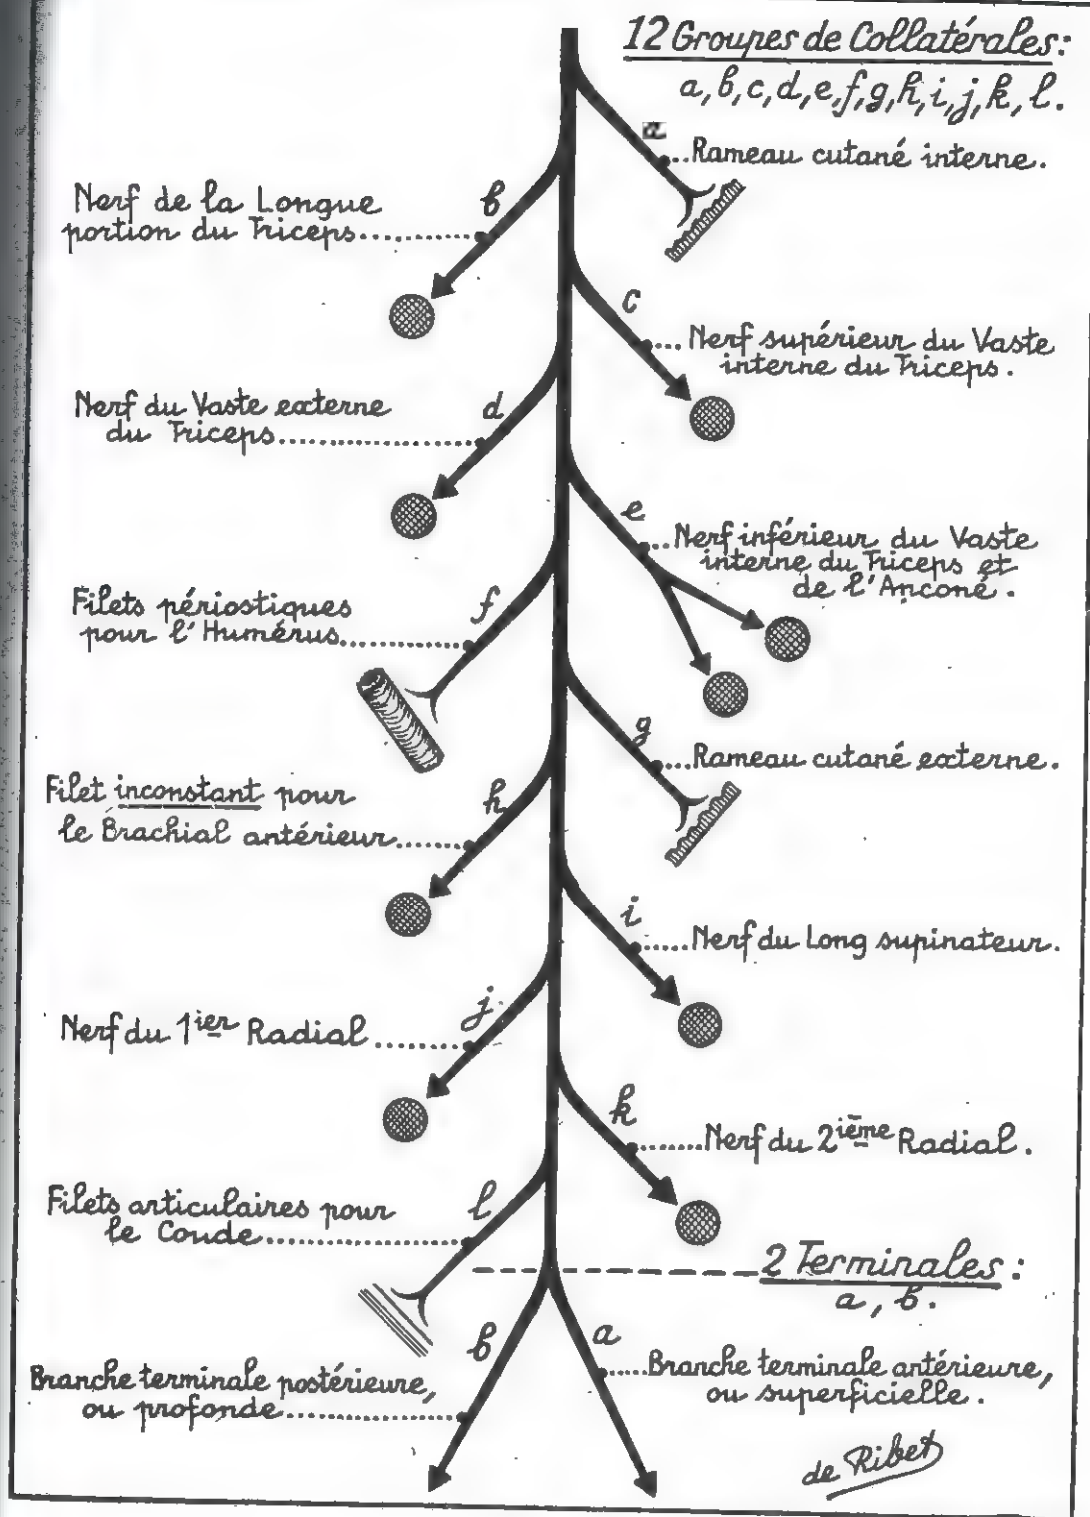 12 Groupes de Collatérales:
a, b, c, d, e, f, g, h, i, j, k, l.
a
..Rameau cutané interne.
b
Nerf de la Longue
portion du Triceps............
c
.... Nerf supérieur du Vaste
interne du Triceps.
d
Nerf du Vaste externe
du Triceps....................
e
...Nerf inférieur du Vaste
interne du Triceps et
de l'Anconé.
f
Filets périostiques
pour l'Humérus............
g
....Rameau cutané externe.
h
Filet inconstant pour
le Brachial antérieur.......
i
.....Nerf du Long supinateur.
j
Nerf du 1ier Radial ........
k
.......Nerf du 2ième Radial.
l
Filets articulaires pour
le Coude....................
2 Terminales:
a, b.
a
.....Branche terminale antérieure,
ou superficielle.
b
Branche terminale postérieure,
ou profonde.................
de Ribet